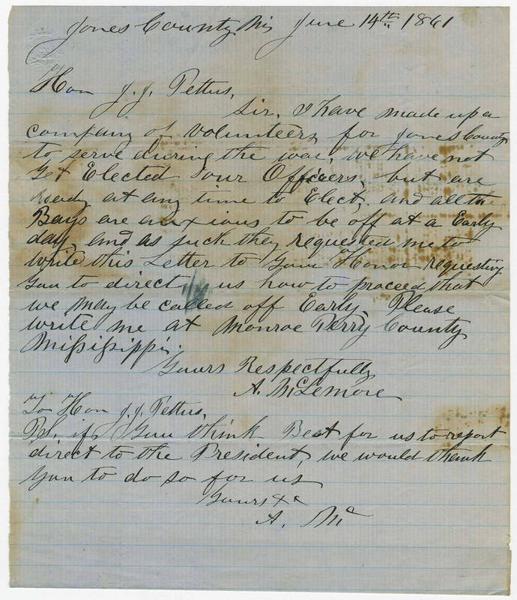 Jones County Mis June 14th 1861
Hon J. J. Pettus,
Sir, I have made up a
company of volunteers, for Jones County
to serve during the war, we have not
yet Elected our Officers, but are
ready at any time to Elect, and all the
Boys are anxious to be off at a Early
day, and as such they requested me to
write this Letter to your Honor requesting
you to direct us how to proceed that
we may be called off Early, Please
write me at Monroe Perry County
Mississippi.
Yours Respectfully
A. McLemore
To Hon J. J. Pettus,
P.S. if you think Best for us to report
direct to the President, we would thank
you to do so for us
Yours &c
A. Mc